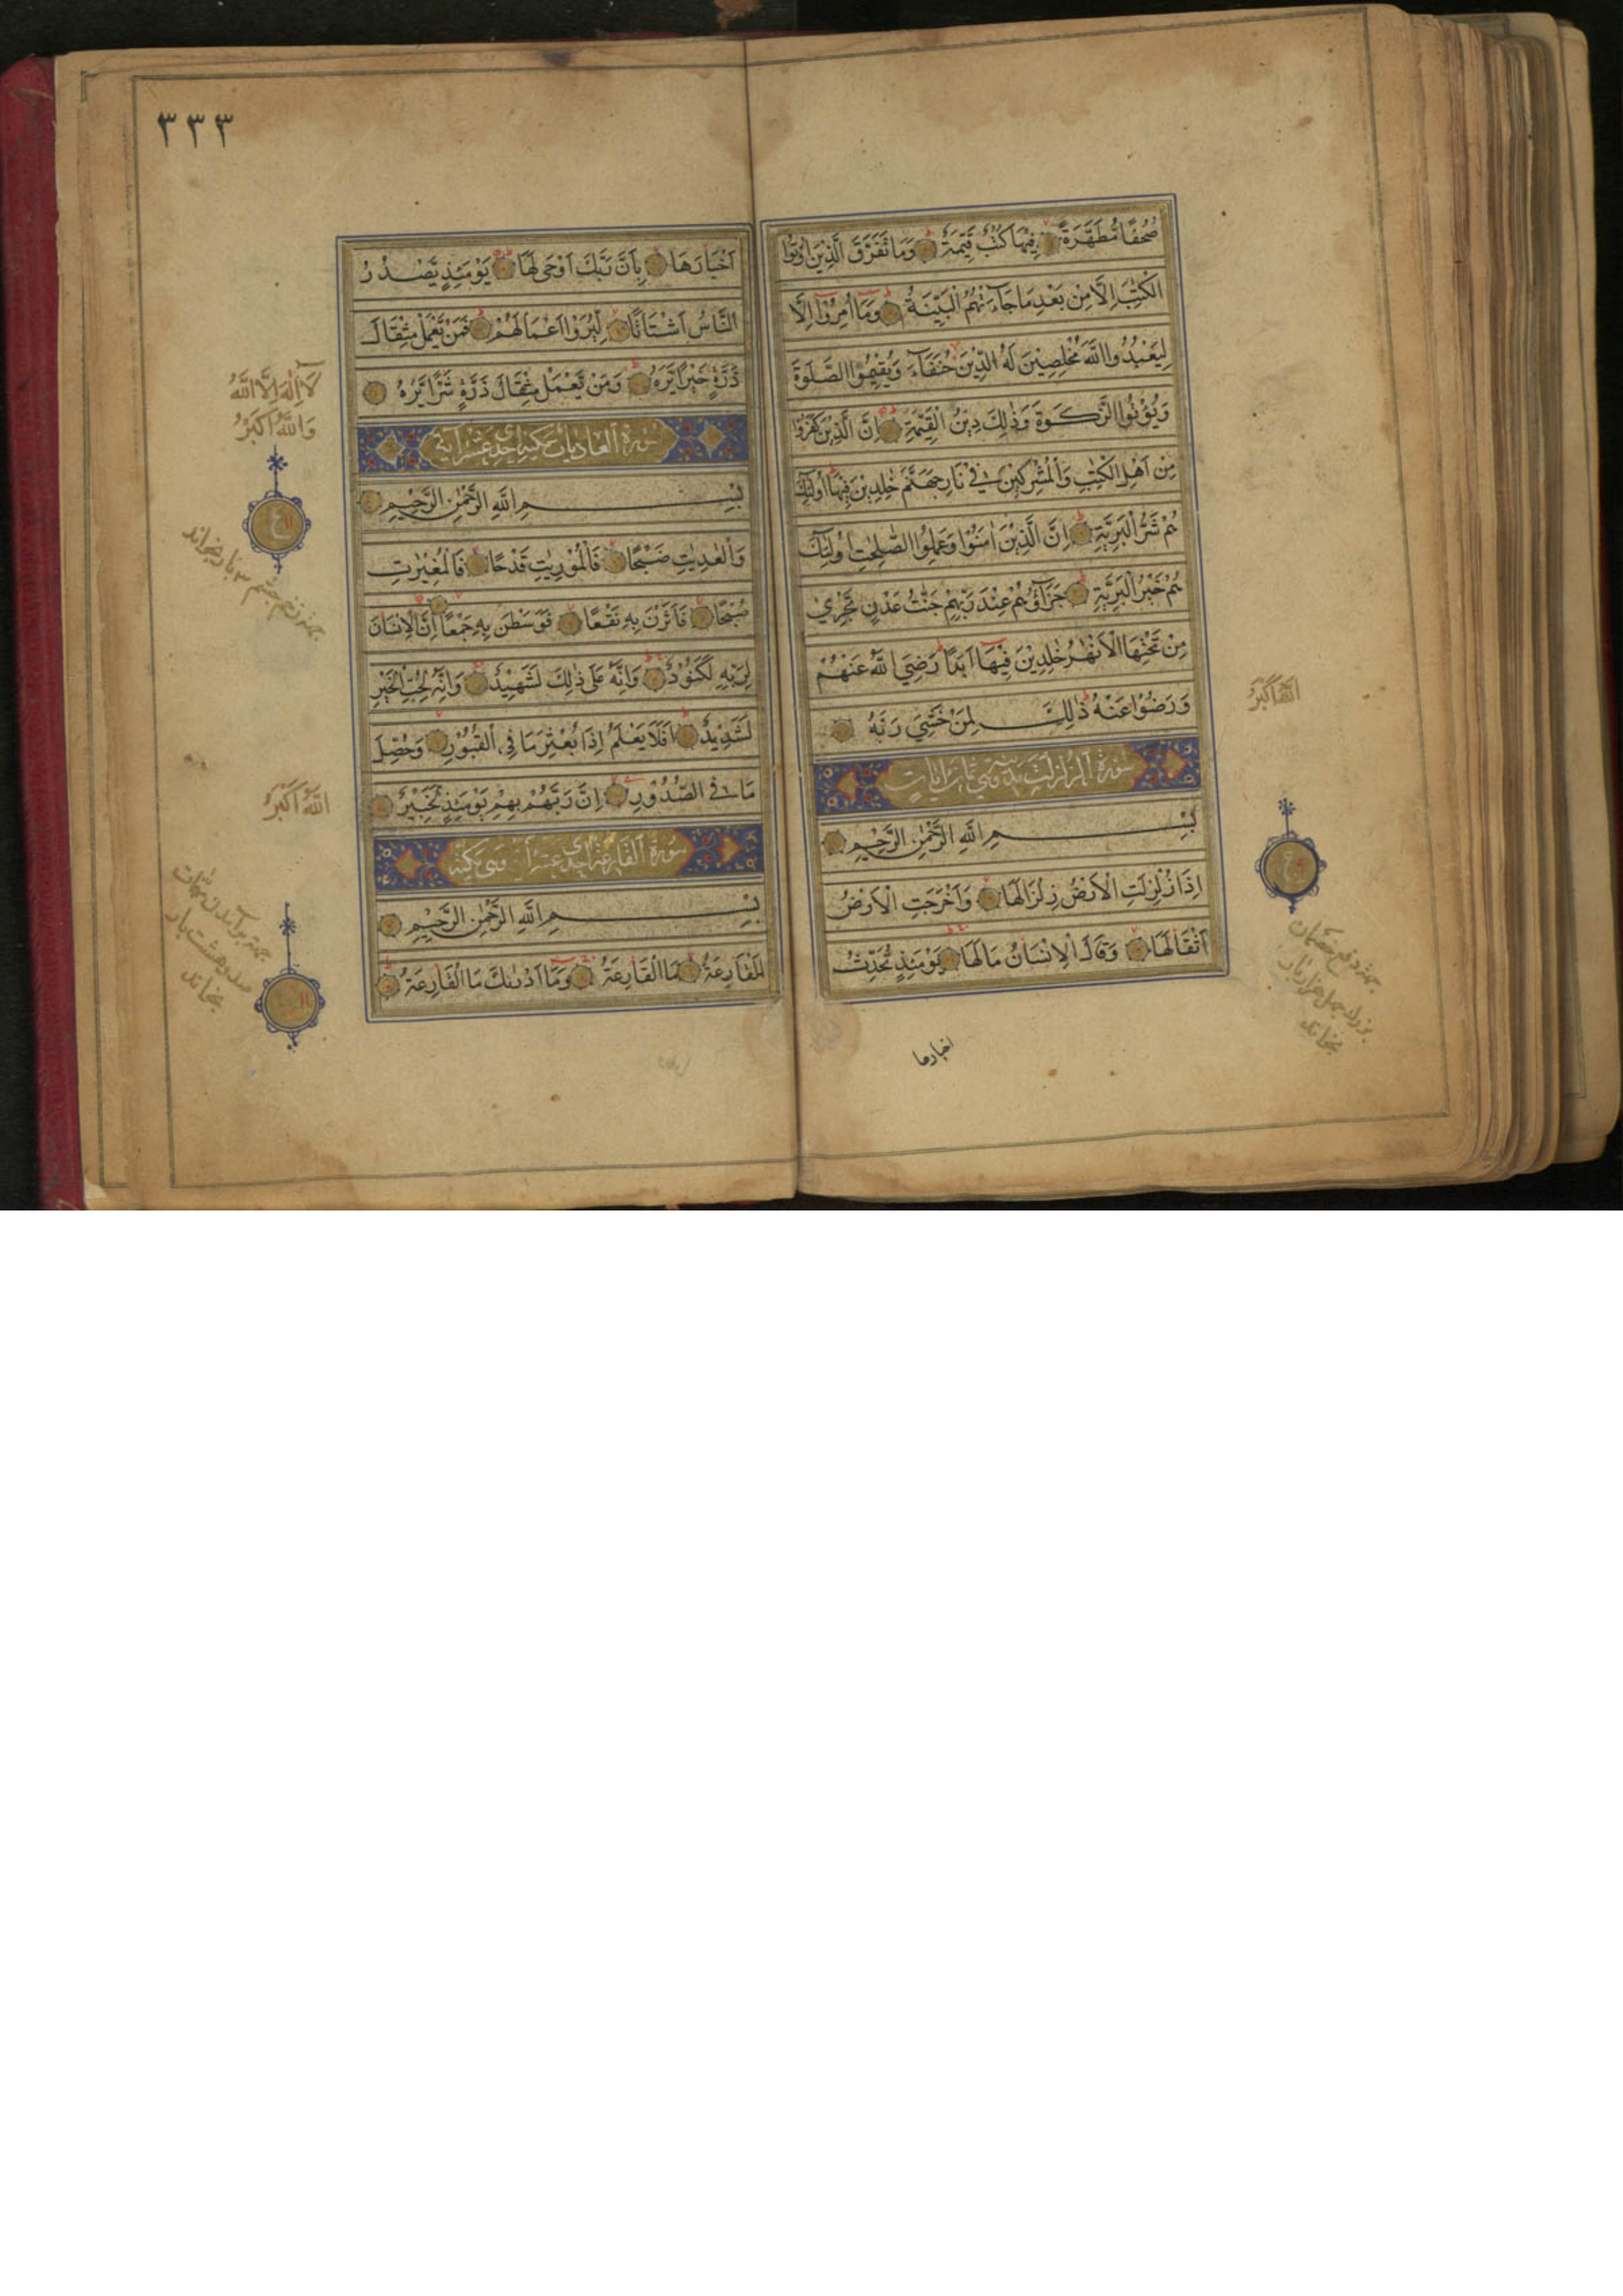 صُحُفًا مُّطَهَّرَةً فِيهَا كُتُبٌ قَيِّمَةٌ وَمَا تَفَرَّقَ الَّذِينَ اُوتُوا
الْكِتٰبَ اِلَّا مِنْ بَعْدِ مَا جَآءَتْهُمُ الْبَيِّنَةُ وَمَا اُمِرُوْا اِلَّا
لِيَعْبُدُوا اللّٰهَ مُخْلِصِيْنَ لَهُ الدِّيْنَ حُنَفَآءَ وَيُقِيْمُوا الصَّلٰوةَ
وَيُؤْتُوا الزَّكٰوةَ وَذٰلِكَ دِيْنُ الْقَيِّمَةِ اِنَّ الَّذِيْنَ كَفَرُوْا
مِنْ اَهْلِ الْكِتٰبِ وَالْمُشْرِكِيْنَ فِيْ نَارِ جَهَنَّمَ خٰلِدِيْنَ فِيْهَا اُولٰئِكَ
هُمْ شَرُّ الْبَرِيَّةِ اِنَّ الَّذِيْنَ اٰمَنُوْا وَعَمِلُوا الصّٰلِحٰتِ اُولٰئِكَ
هُمْ خَيْرُ الْبَرِيَّةِ جَزَآؤُهُمْ عِنْدَ رَبِّهِمْ جَنّٰتُ عَدْنٍ تَجْرِيْ
مِنْ تَحْتِهَا الْاَنْهٰرُ خٰلِدِيْنَ فِيْهَا اَبَدًا رَضِيَ اللّٰهُ عَنْهُمْ
وَرَضُوْا عَنْهُ ذٰلِكَ لِمَنْ خَشِيَ رَبَّهُ
سورة الزلزلت وهي ثمان ايات
بِسْمِ اللّٰهِ الرَّحْمٰنِ الرَّحِيْمِ
اِذَا زُلْزِلَتِ الْاَرْضُ زِلْزَالَهَا وَاَخْرَجَتِ الْاَرْضُ
اَثْقَالَهَا وَقَالَ الْاِنْسَانُ مَا لَهَا يَوْمَئِذٍ تُحَدِّثُ
اخبارها
اللّٰهُ اَكْبَرُ
ع
بخوانند
٣٣٣
اَخْبَارَهَا بِاَنَّ رَبَّكَ اَوْحٰى لَهَا يَوْمَئِذٍ يَّصْدُرُ
النَّاسُ اَشْتَاتًا لِّيُرَوْا اَعْمَالَهُمْ فَمَنْ يَّعْمَلْ مِثْقَالَ
ذَرَّةٍ خَيْرًا يَّرَهُ وَمَنْ يَّعْمَلْ مِثْقَالَ ذَرَّةٍ شَرًّا يَّرَهُ
سورة العاديات مكية احدى عشر آية
بِسْمِ اللّٰهِ الرَّحْمٰنِ الرَّحِيْمِ
وَالْعٰدِيٰتِ ضَبْحًا فَالْمُوْرِيٰتِ قَدْحًا فَالْمُغِيْرٰتِ
صُبْحًا فَاَثَرْنَ بِهِ نَقْعًا فَوَسَطْنَ بِهِ جَمْعًا اِنَّ الْاِنْسَانَ
لِرَبِّهِ لَكَنُوْدٌ وَاِنَّهُ عَلٰى ذٰلِكَ لَشَهِيْدٌ وَاِنَّهُ لِحُبِّ الْخَيْرِ
لَشَدِيْدٌ اَفَلَا يَعْلَمُ اِذَا بُعْثِرَ مَا فِى الْقُبُوْرِ وَحُصِّلَ
مَا فِى الصُّدُوْرِ اِنَّ رَبَّهُمْ بِهِمْ يَوْمَئِذٍ لَّخَبِيْرٌ
سورة القارعة احدى عشر وهي مكية
بِسْمِ اللّٰهِ الرَّحْمٰنِ الرَّحِيْمِ
اَلْقَارِعَةُ مَا الْقَارِعَةُ وَمَا اَدْرٰىكَ مَا الْقَارِعَةُ
لَآ اِلٰهَ اِلَّا اللّٰهُ
وَاللّٰهُ اَكْبَرُ
ع
جهة زخم چشم ٣ بار بخواند
اللّٰهُ اَكْبَرُ
جهة برآمدن
صد و هشت بار
بخواند